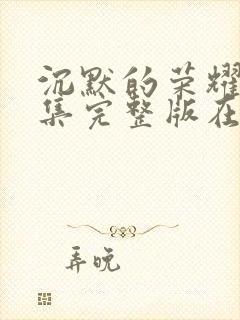 沉默的荣耀
集完整版在
弄晚